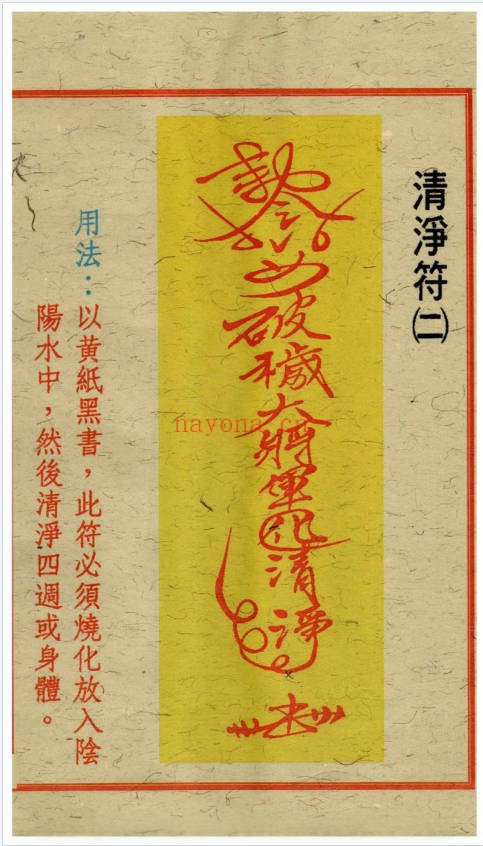 清淨符㈡
破穢大將軍
清淨
用法：以黃紙黑書，此符必須燒化放入陰
陽水中，然後清淨四週或身體。
nayona.cn